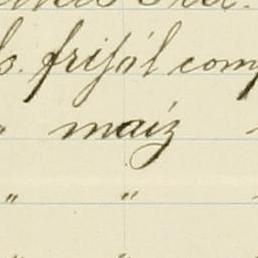 s. frijól com
" maíz "
" "